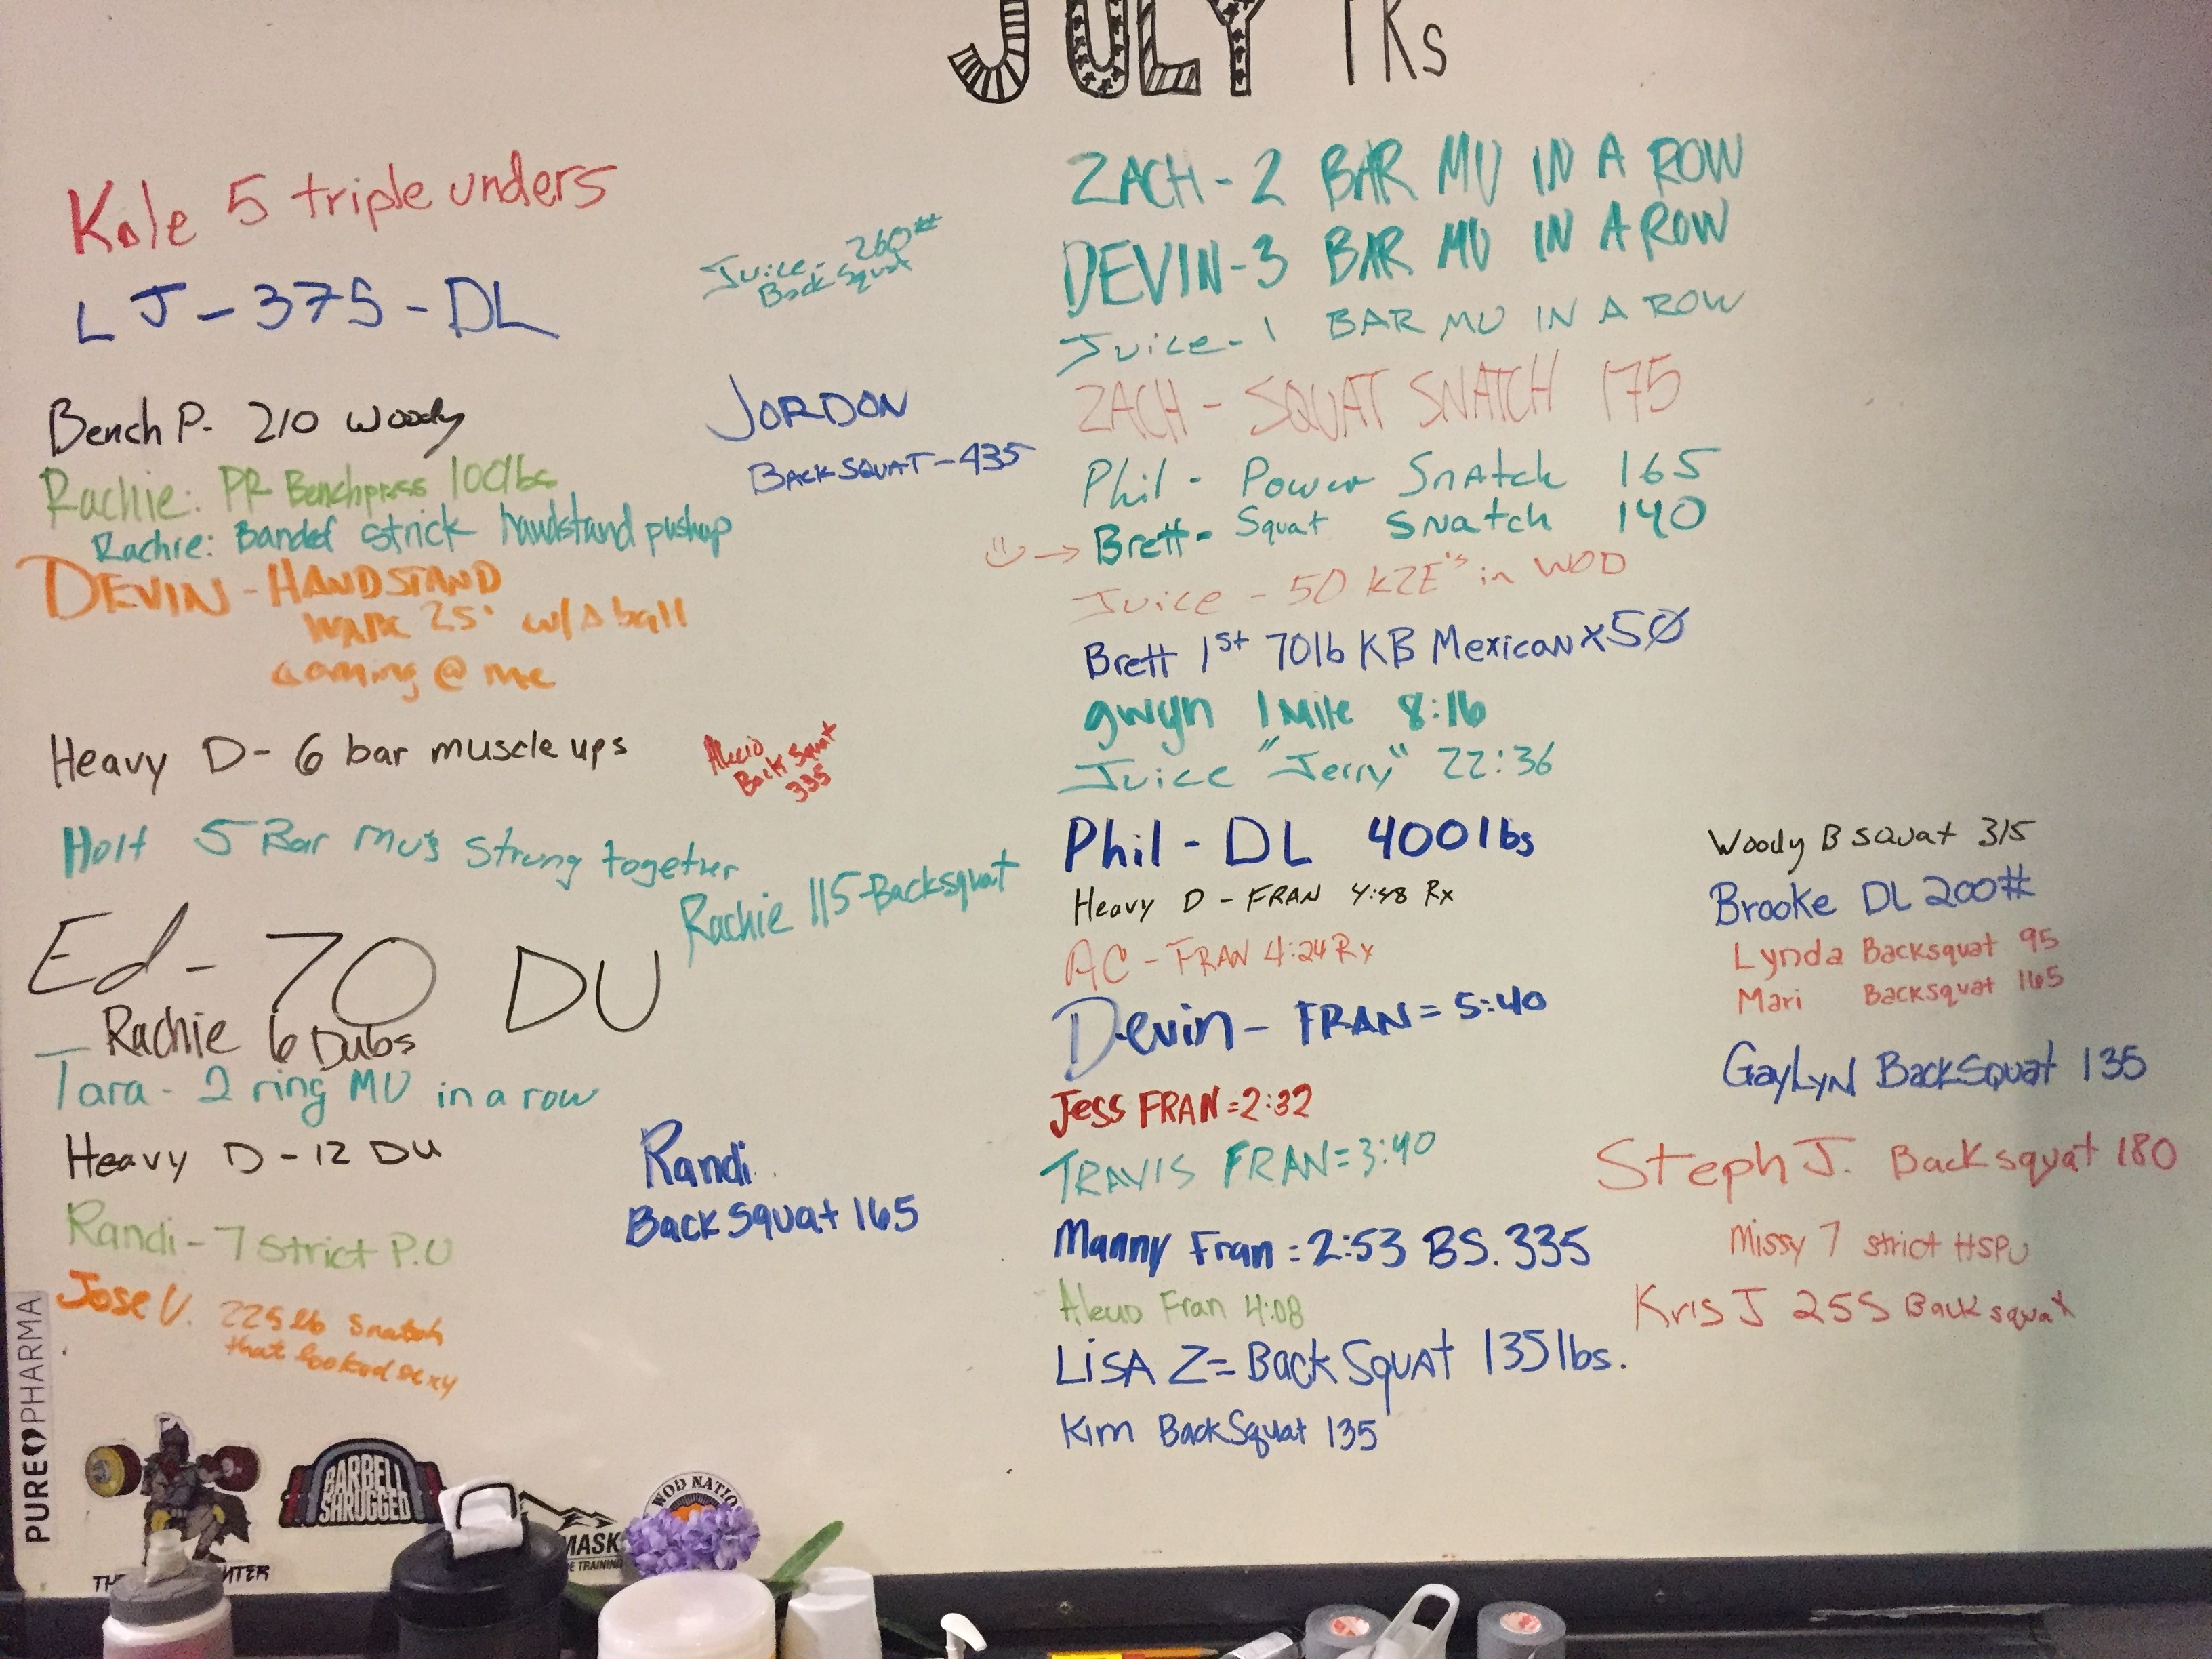 JULY PRs
Kole 5 triple unders
LJ-375-DL
Juice- 260#
Back Squat
Bench P- 210 Woody
JORDON
BACKSQUAT-435
Rachie: PR Benchpress 100lbs
Rachie: Banded strick handstand pushup
DEVIN-HANDSTAND
WALK 25' w/A ball
coming @ me
Heavy D- 6 bar muscle ups
Alecio
Back Squat
335
Holt 5 Bar Mu's Strung together
Rachie 115-Backsquat
Ed- 70 DU
Rachie 6 Dubs
Tara- 2 ring MU in a row
Heavy D-12 DU
Randi
Back Squat 165
Randi-7 Strict P.U
Jose V. 225lb Snatch
that looked sexy
ZACH-2 BAR MU IN A ROW
DEVIN-3 BAR MU IN A ROW
Juice-1 BAR MU IN A ROW
ZACH-SQUAT SNATCH 175
Phil- Power Snatch 165
Brett- Squat Snatch 140
Juice-50 K2E"s in WOD
Brett 1st 70lb KB Mexican x 50
gwyn 1 Mile 8:16
Juice "Jerry" 22:36
Phil-DL 400lbs
Heavy D-FRAN 4:48 Rx
AC-FRAN 4:24 Rx
Devin- FRAN=5:40
Jess FRAN=2:32
TRAVIS FRAN=3:40
Manny Fran=2:53 BS. 335
Alecio Fran 4:08
LiSA Z=Back Squat 135lbs.
Kim BackSquat 135
Woody B squat 315
Brooke DL 200#
Lynda Backsquat 95
Mari Backsquat 165
GayLyn BackSquat 135
Steph J. Backsquat 180
Missy 7 strict HSPU
Kris J 255 Backsquat
PUREPHARMA
BARBELL
SHRUGGED
MASK
TRAINING
WOD NATIO